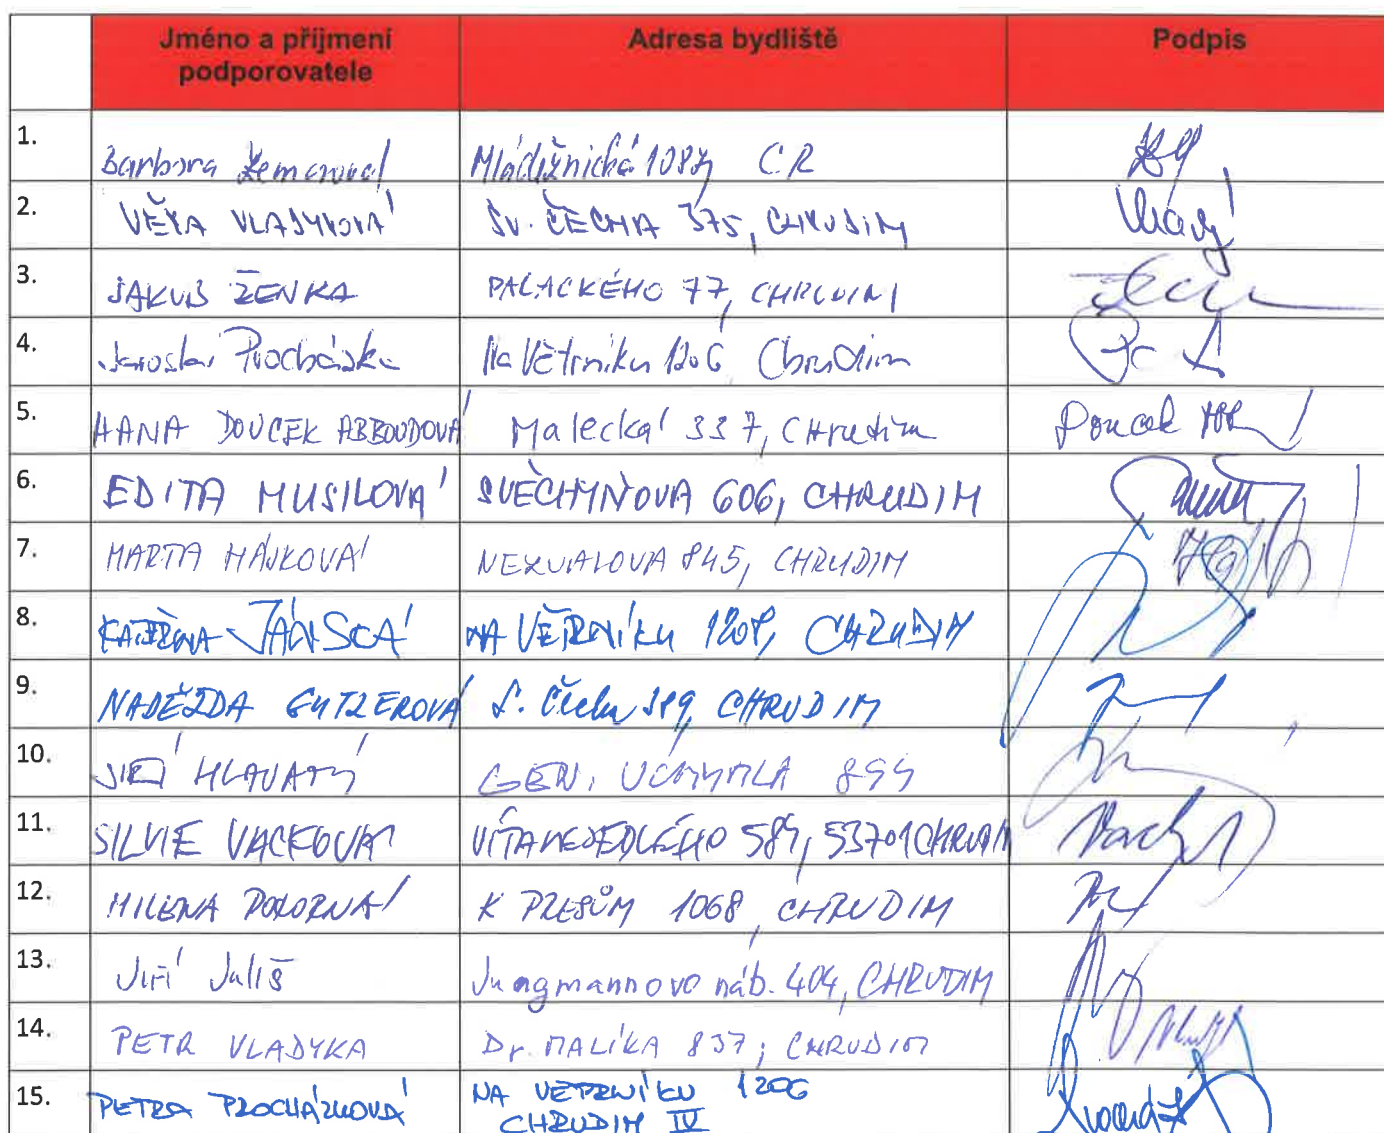 Jméno a příjmení podporovatele Adresa bydliště Podpis
1. Barbora Zemanová Mládežnická 1087, CR
2. VĚRA VLADYKOVÁ SV. ČECHA 375, CHRUDIM
3. JAKUB ŽENKA PALACKÉHO 77, CHRUDIM
4. Jaroslav Procházka Na Větrníku 1206 Chrudim
5. HANA DOUCEK ABBOUDOVÁ Malecká 337, CHrudim Doucek
6. EDITA MUSILOVÁ 606, CHRUDIM
7. MARTA HÁJKOVÁ NEZVALOVA 845, CHRUDIM
8. KATEŘINA JÁNSKÁ NA VĚTRNÍKU 1208, CHRUDIM
9. NADĚŽDA GUTZEROVÁ S. Čecha 389, CHRUDIM
10. JIŘÍ HLAVATÝ GEN. 899
11. SILVIE VACKOVÁ VÍTA NEJEDLÉHO 584, 53701 CHRUDIM
12. MILENA POKORNÁ K PRESŮM 1068, CHRUDIM
13. Jiří Juliš Jungmannovo náb. 404, CHRUDIM
14. PETR VLADYKA Dr. MALÍKA 837, CHRUDIM
15. PETRA PROCHÁZKOVÁ NA VĚTRNÍKU 1206
CHRUDIM IV